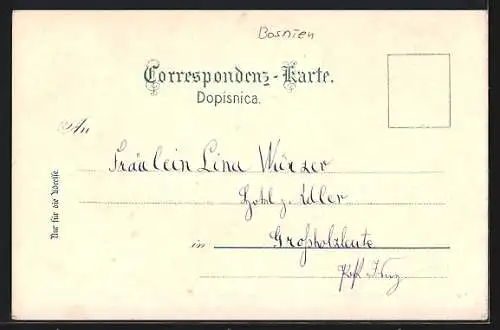 Bosnien
Correspondenz-Karte.
Dopisnica.
An
Fräulein Lina Würzer
Hotel z. Adler
in Großholzleute
Nur für die Adresse